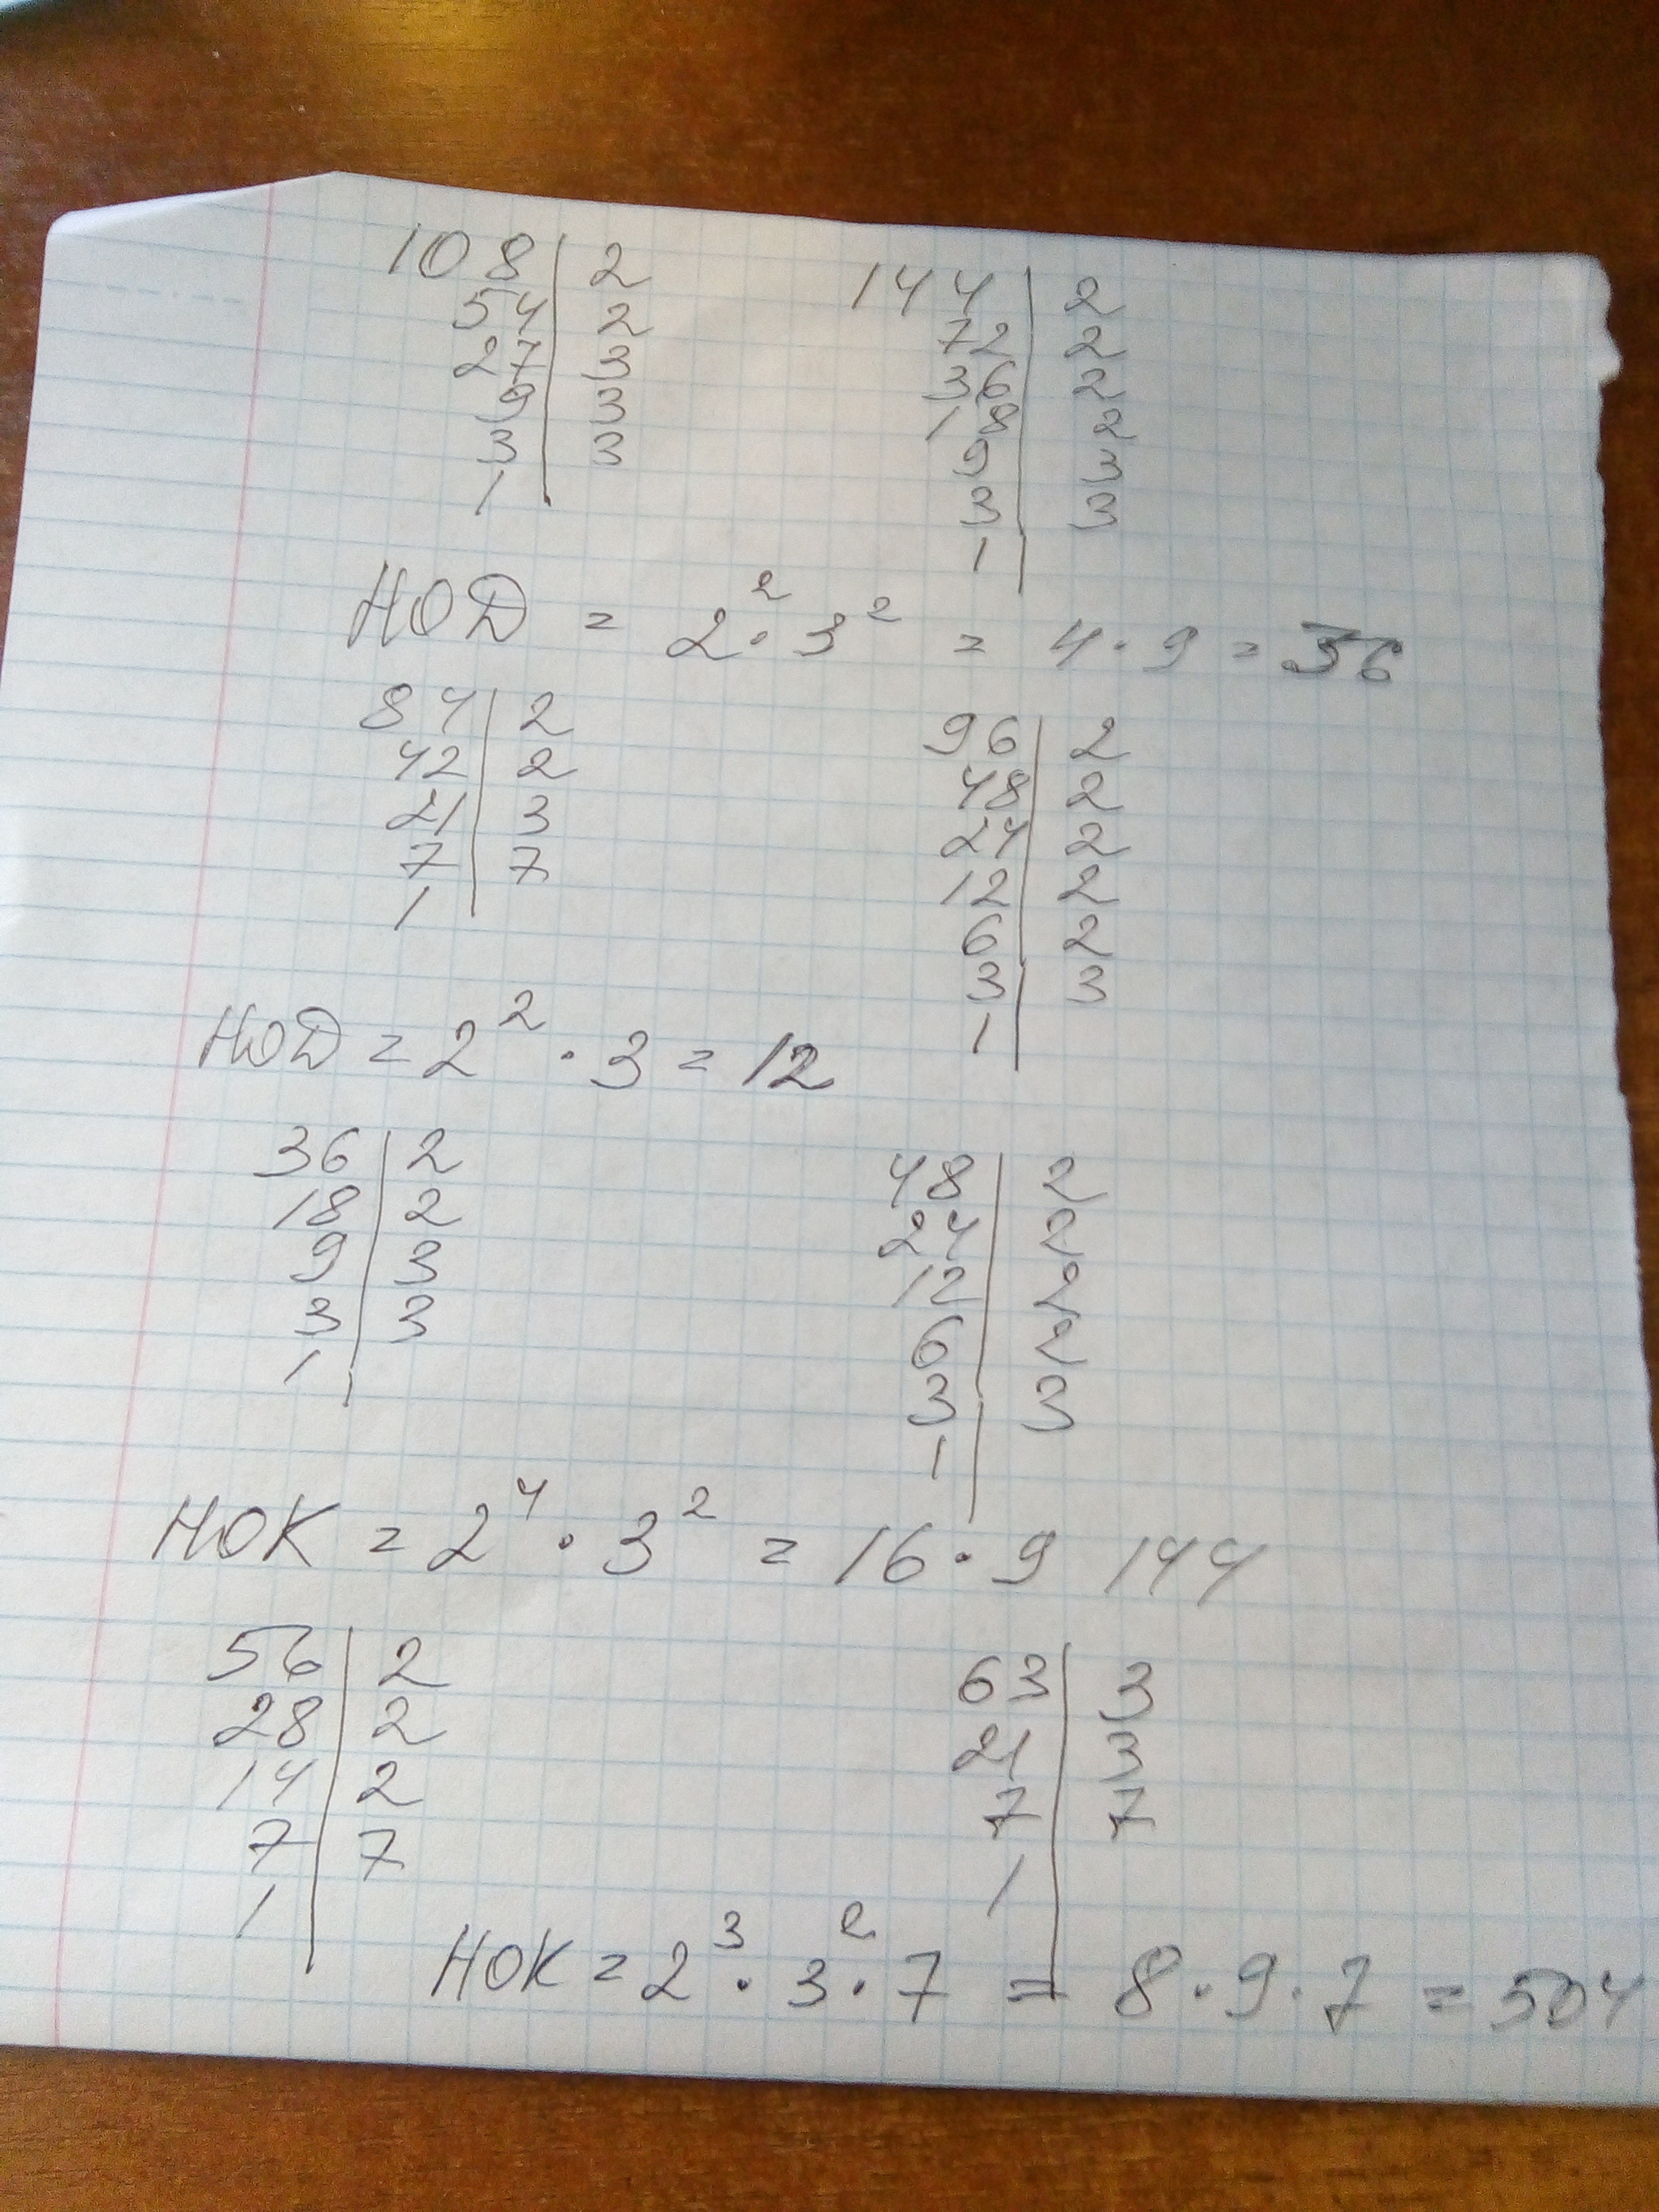 108 | 2
54 | 2
27 | 3
9 | 3
3 | 3
1
144 | 2
72 | 2
36 | 2
18 | 2
9 | 3
3 | 3
1
НОД = 2² · 3² = 4 · 9 = 36
84 | 2
42 | 2
21 | 3
7 | 7
1
96 | 2
48 | 2
24 | 2
12 | 2
6 | 2
3 | 3
1
НОД = 2² · 3 = 12
36 | 2
18 | 2
9 | 3
3 | 3
1
48 | 2
24 | 2
12 | 2
6 | 2
3 | 3
1
НОК = 2⁴ · 3² = 16 · 9 144
56 | 2
28 | 2
14 | 2
7 | 7
1
63 | 3
21 | 3
7 | 7
1
НОК = 2³ · 3² · 7 = 8 · 9 · 7 = 504